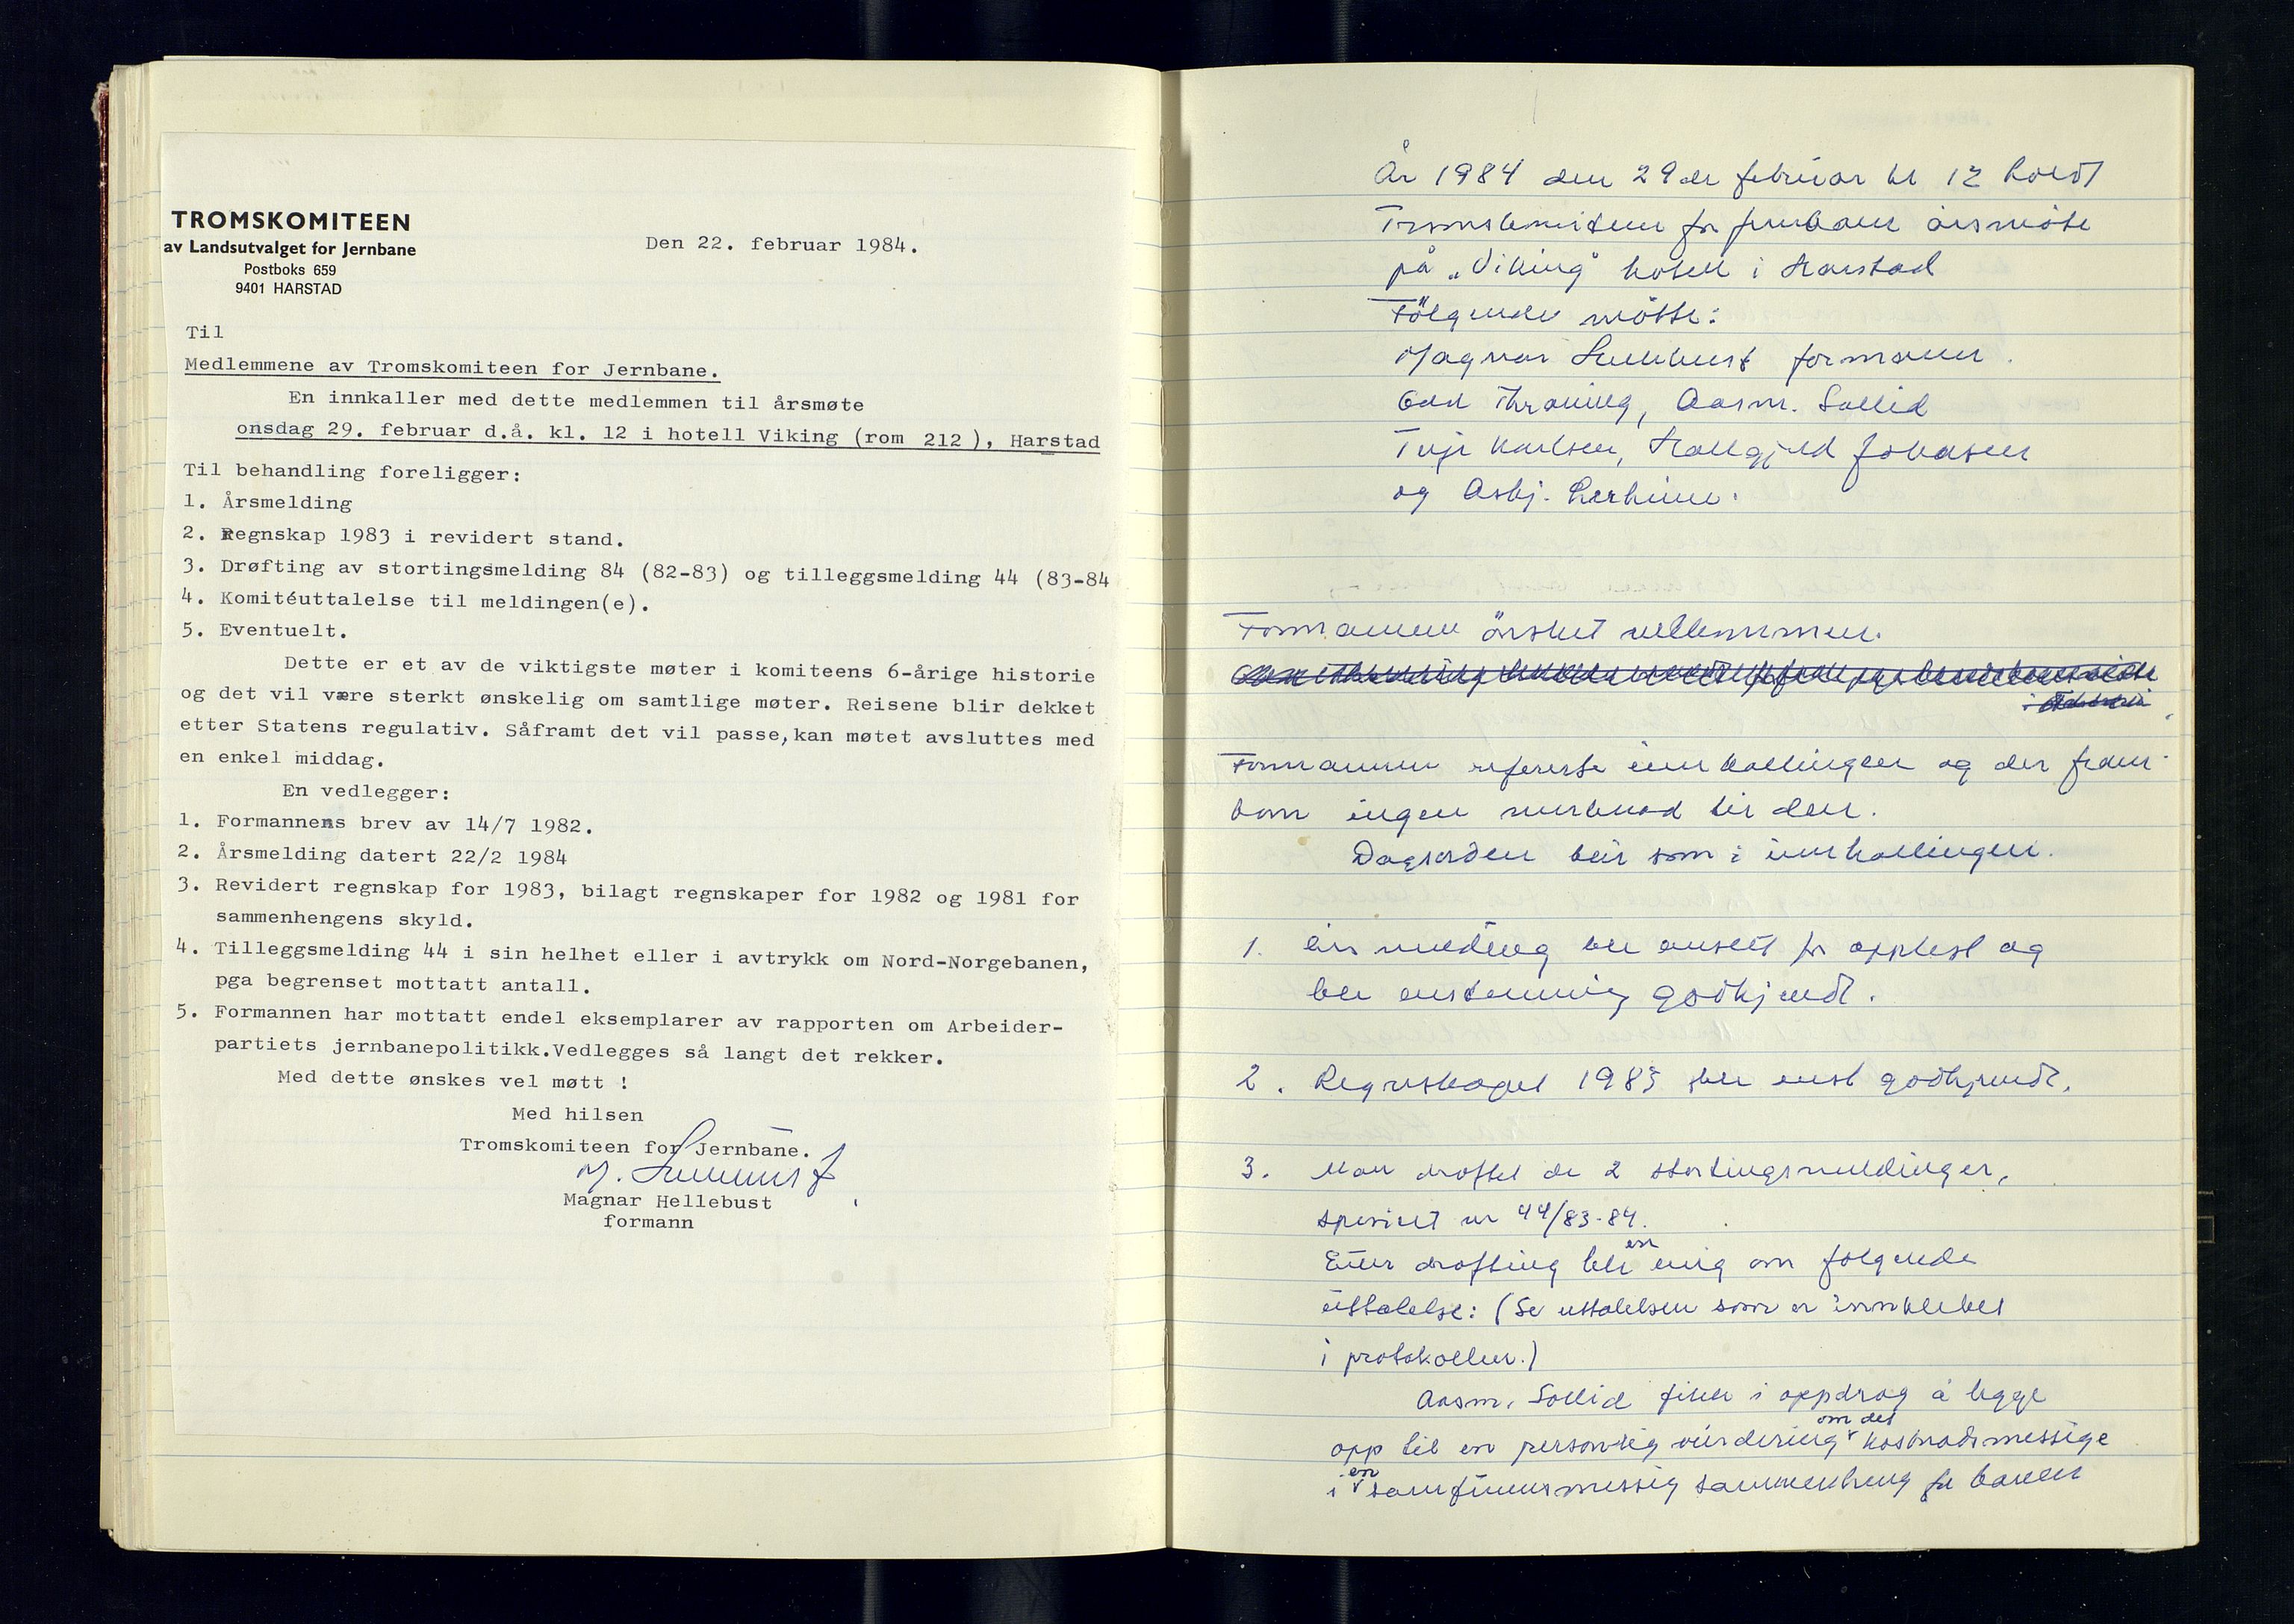 TROMSKOMITEEN
av Landsutvalget for Jernbane
Postboks 659
9401 HARSTAD
Den 22. februar 1984.
Til
Medlemmene av Tromskomiteen for Jernbane.
En innkaller med dette medlemmen til årsmøte
onsdag 29. februar d.å. kl. 12 i hotell Viking (rom 212), Harstad
Til behandling foreligger:
1. Årsmelding
2. Regnskap 1983 i revidert stand.
3. Drøfting av stortingsmelding 84 (82-83) og tilleggsmelding 44 (83-84
4. Komitéuttalelse til meldingen(e).
5. Eventuelt.
Dette er et av de viktigste møter i komiteens 6-årige historie
og det vil være sterkt ønskelig om samtlige møter. Reisene blir dekket
etter Statens regulativ. Såframt det vil passe,kan møtet avsluttes med
en enkel middag.
En vedlegger:
1. Formannens brev av 14/7 1982.
2. Årsmelding datert 22/2 1984
3. Revidert regnskap for 1983, bilagt regnskaper for 1982 og 1981 for
sammenhengens skyld.
4. Tilleggsmelding 44 i sin helhet eller i avtrykk om Nord-Norgebanen,
pga begrenset mottatt antall.
5. Formannen har mottatt endel eksemplarer av rapporten om Arbeider-
partiets jernbanepolitikk.Vedlegges så langt det rekker.
Med dette ønskes vel møtt !
Med hilsen
Tromskomiteen for Jernbane.
M. Hellebust
Magnar Hellebust
formann
År 1984 den 29de februar kl 12 holdt
Tromskomiteen for jernbane årsmöte
på "Viking" hotell i Harstad
Fölgende mötte:
Magnar Hellebust formann.
Odd Thraning, Aasm. Sollid
Terje Karlsen, Hallgjerd Johansen
og Asbj.
Formannen önsket velkommen.
Formannen refererte innkallingen og der frem-
kom ingen merknad til den.
Dagsorden blir som i innkallingen.
1. Årsmelding ble ansett for opplest og
ble enstemmig godkjendt.
2. Regnskapet 1983 ble enst godkjendt.
3. Man drøftet de 2 stortingsmeldinger,
spesielt nr 44/83-84.
Etter drøfting ble en enig om følgende
uttalelse: (Se uttalelsen som er innklebet
i protokollen.)
Aasm. Sollid fikk i oppdrag å legge
opp til en personlig vurdering om det kostnadsmessige
i en samfunnsmessig sammenheng for banen